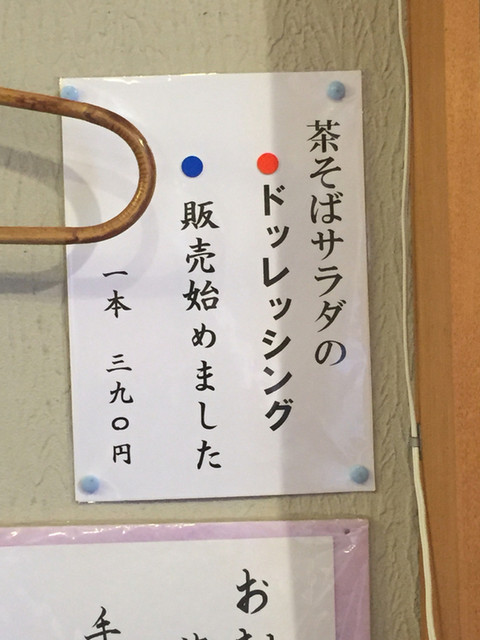 茶そばサラダの
ドッレッシング
販売始めました
一本 三九〇円
お
手